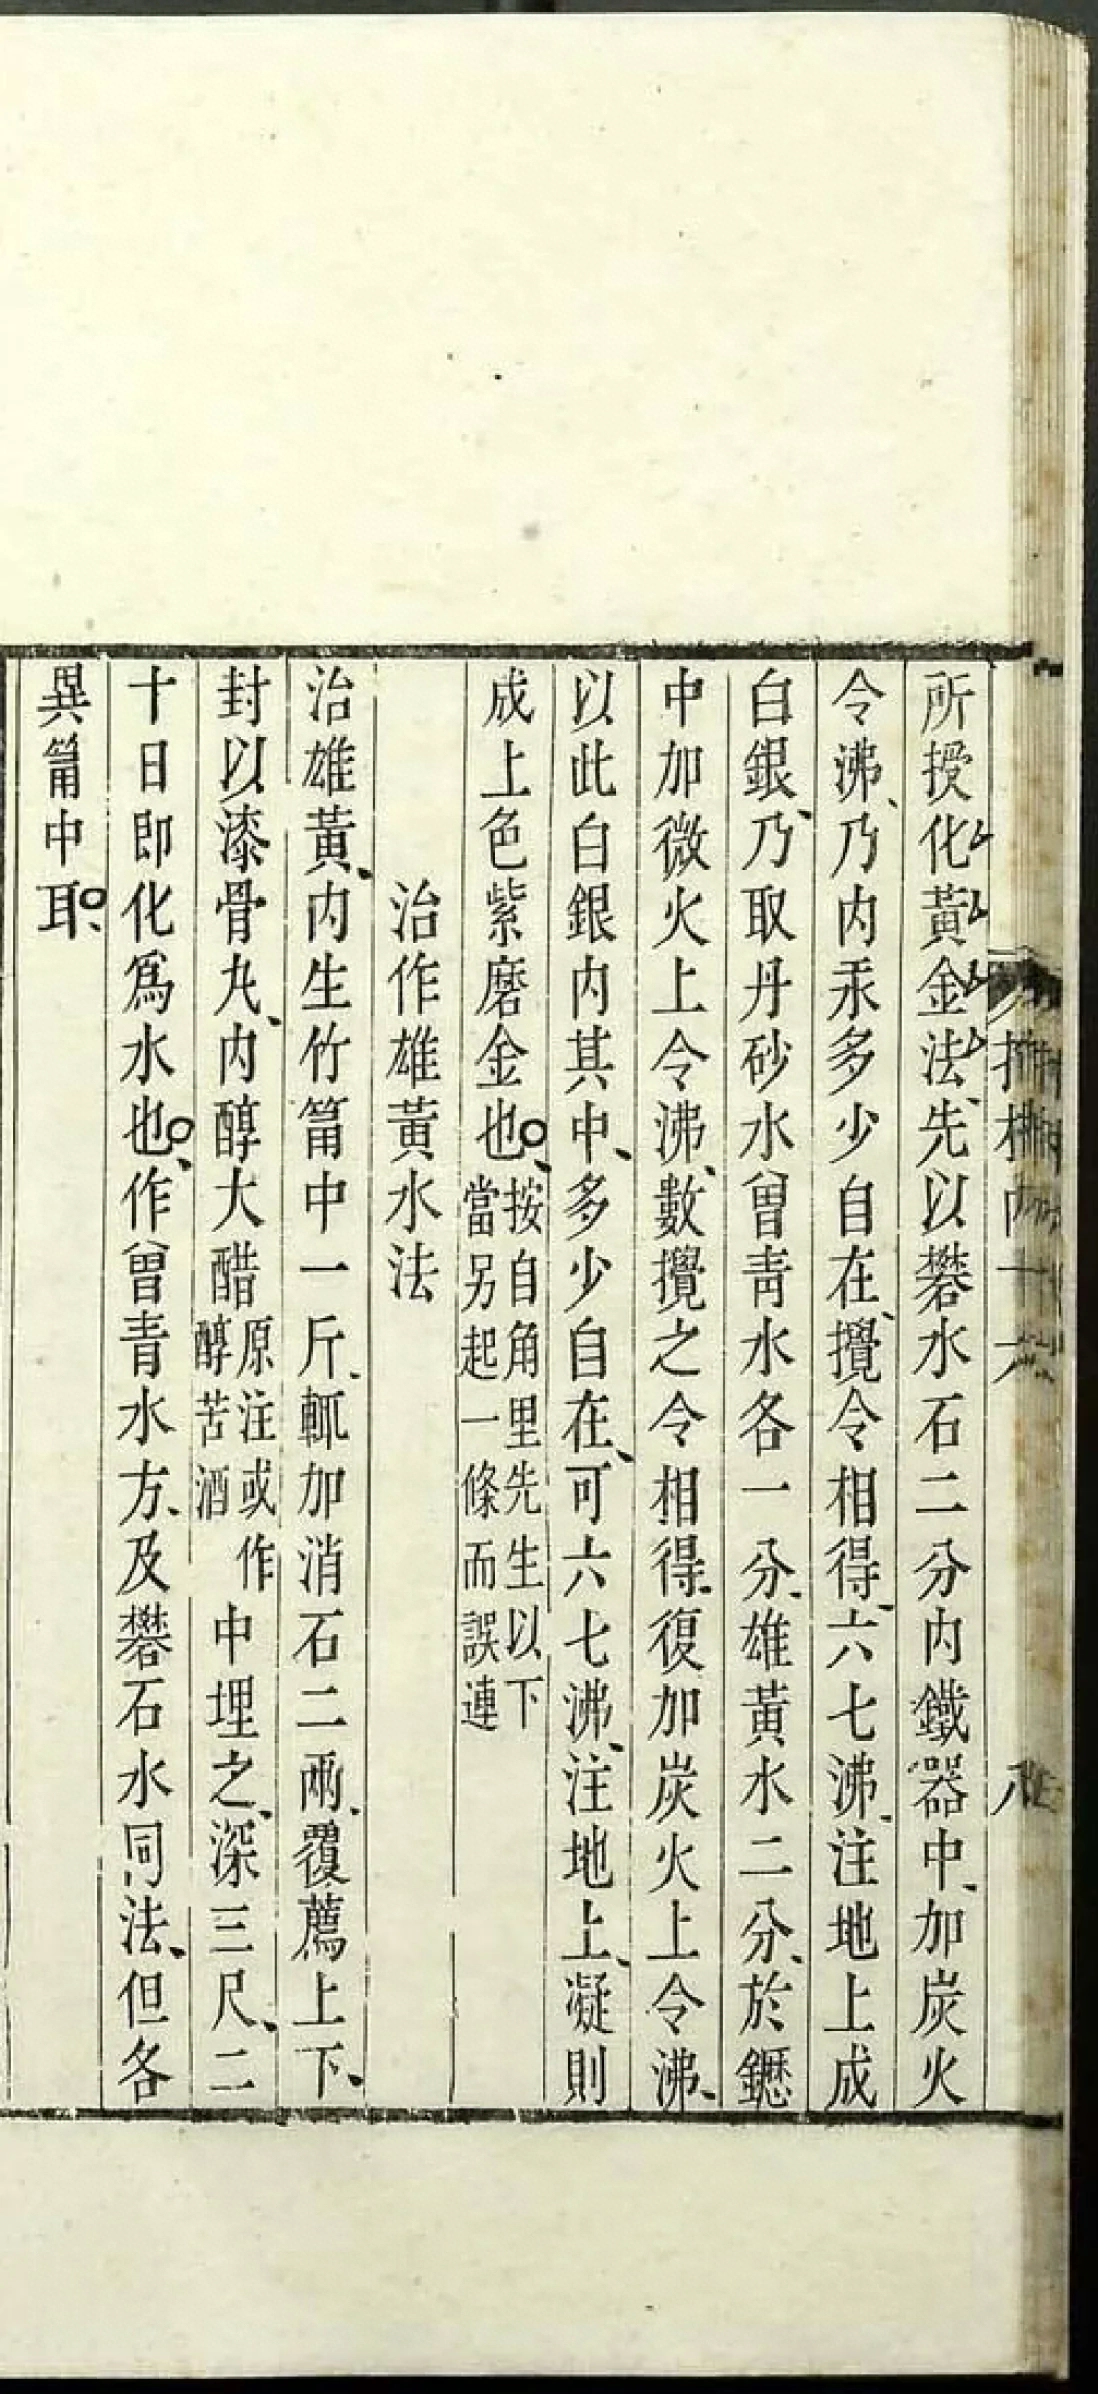 所授化黃金法先以礬水石二分内鐵器中加炭火
令沸乃内汞多少自在攪令相得六七沸注地上成
白銀乃取丹砂水曾青水各一分雄黃水二分於鑩
中加微火上令沸數攪之令相得復加炭火上令沸
以此白銀内其中多少自在可六七沸注地上凝則
成上色紫磨金也按自角里先生以下
當另起一條而誤連
治作雄黃水法
治雄黃内生竹筩中一斤輒加消石二兩覆薦上下
封以漆骨丸内醇大醋原注或作
醇苦酒
中埋之深三尺二
十日即化爲水也作曾青水方及礬石水同法但各
異筩中耳